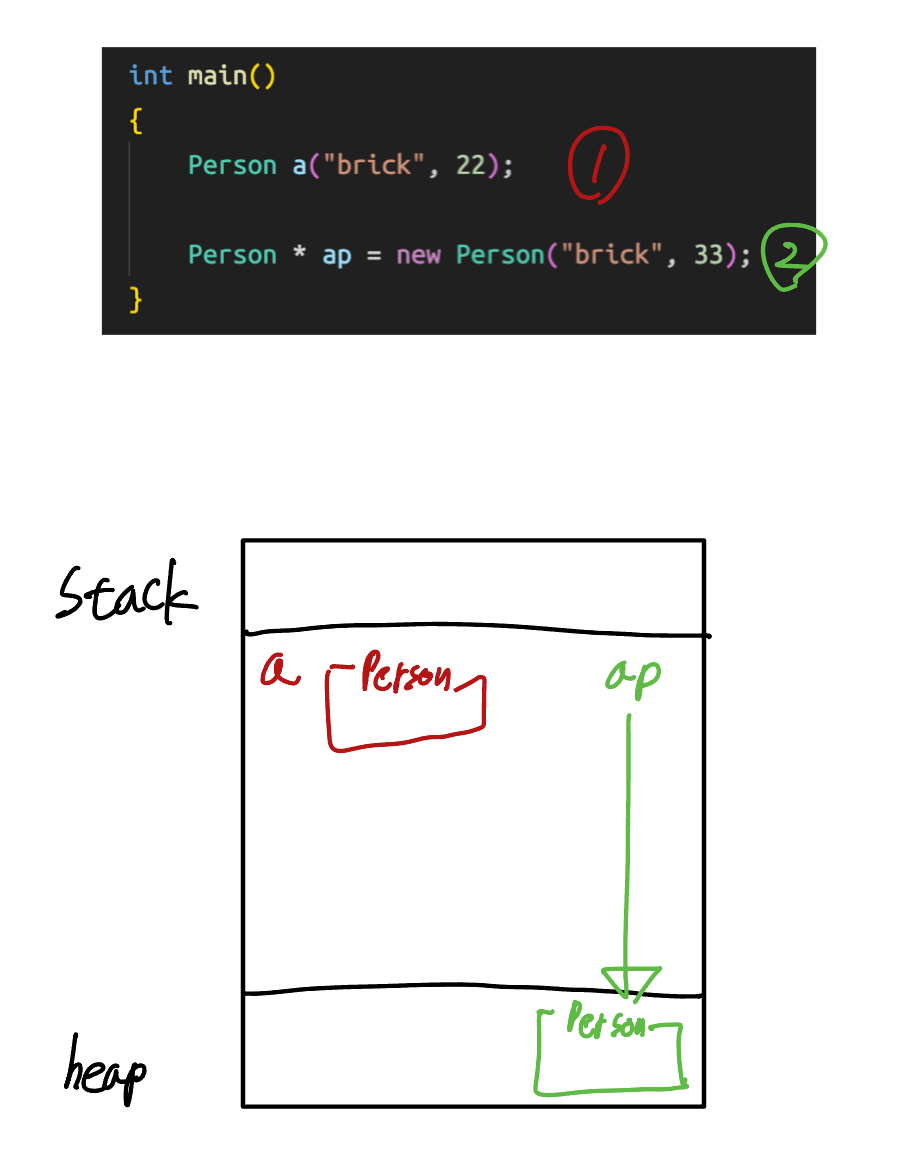 int main()
{
Person a("brick", 22); 1
Person * ap = new Person("brick", 33); 2
}
Stack
a Person ap
Person
heap